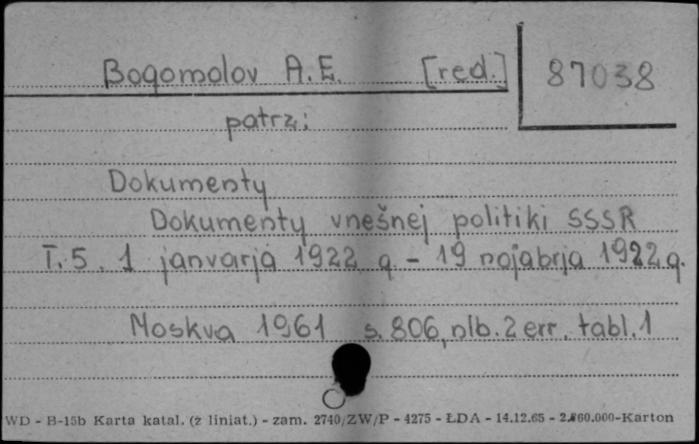 Bogomolov A.E. [red.] 87038
patrz:
Dokumenty
Dokumenty vnešnej politiki SSSR
T. 5. 1 janvarja 1922 g - 19 nojabrja 1922 g.
Moskva 1961 s. 806, nlb. 2 err. tabl. 1
WD - B-15b Karta katal. (z liniat.) - zam. 2740/ZW/P - 4275 - ŁDA - 14.12.65 - 2.860.000-Karton